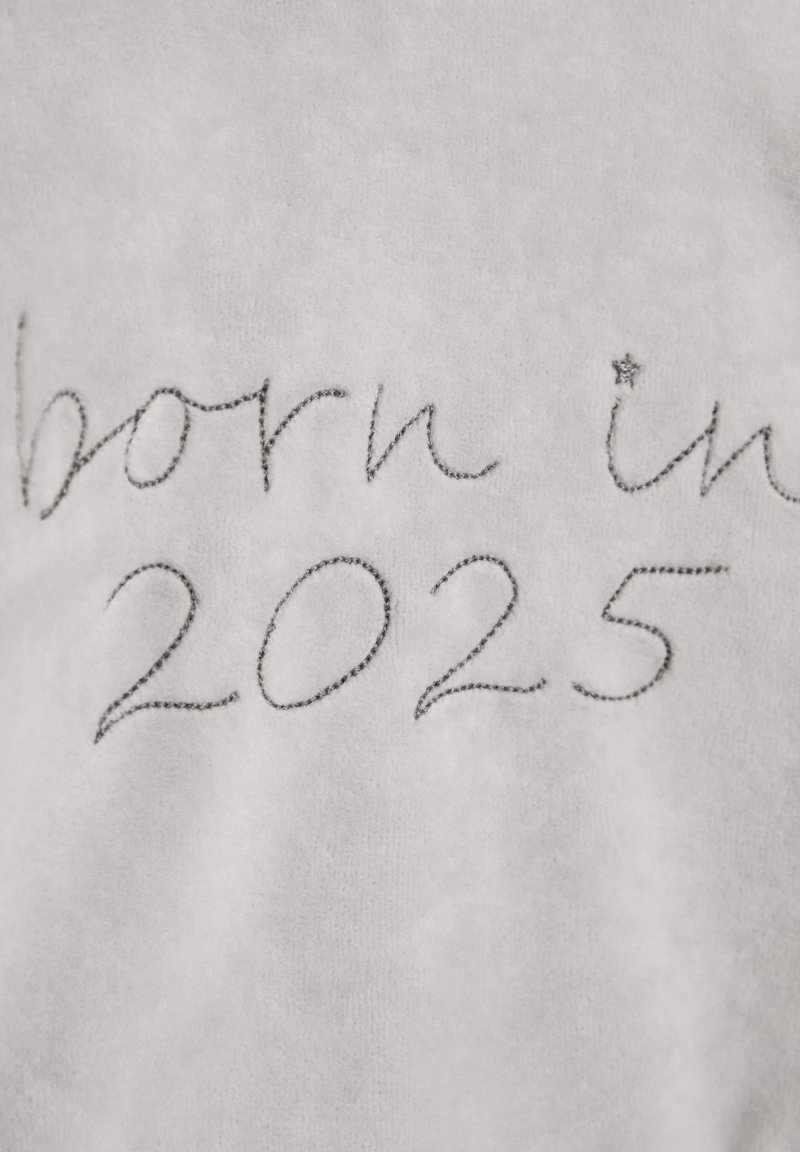 born in
2025